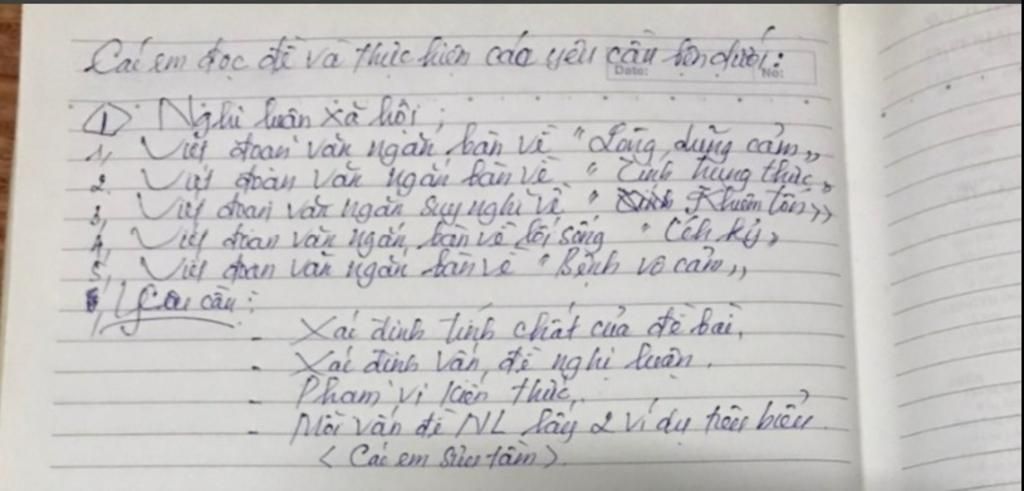 Các em đọc đề và thực hiện các yêu cầu bên dưới:
Date: No:
① Nghị luận xã hội:
1, Viết đoạn văn ngắn bàn về "Lòng dũng cảm"
2. Viết đoạn văn ngắn bàn về "Tính trung thực"
3, Viết đoạn văn ngắn suy nghĩ về " Khiêm tốn"
4, Viết đoạn văn ngắn bàn về lối sống "ích kỷ"
5, Viết đoạn văn ngắn bàn về "Bệnh vô cảm"
Yêu cầu:
- Xác định tính chất của đề bài.
- Xác định vấn đề nghị luận.
- Phạm vi kiến thức.
- Mỗi vấn đề NL lấy 2 ví dụ tiêu biểu.
< Các em sưu tầm >.